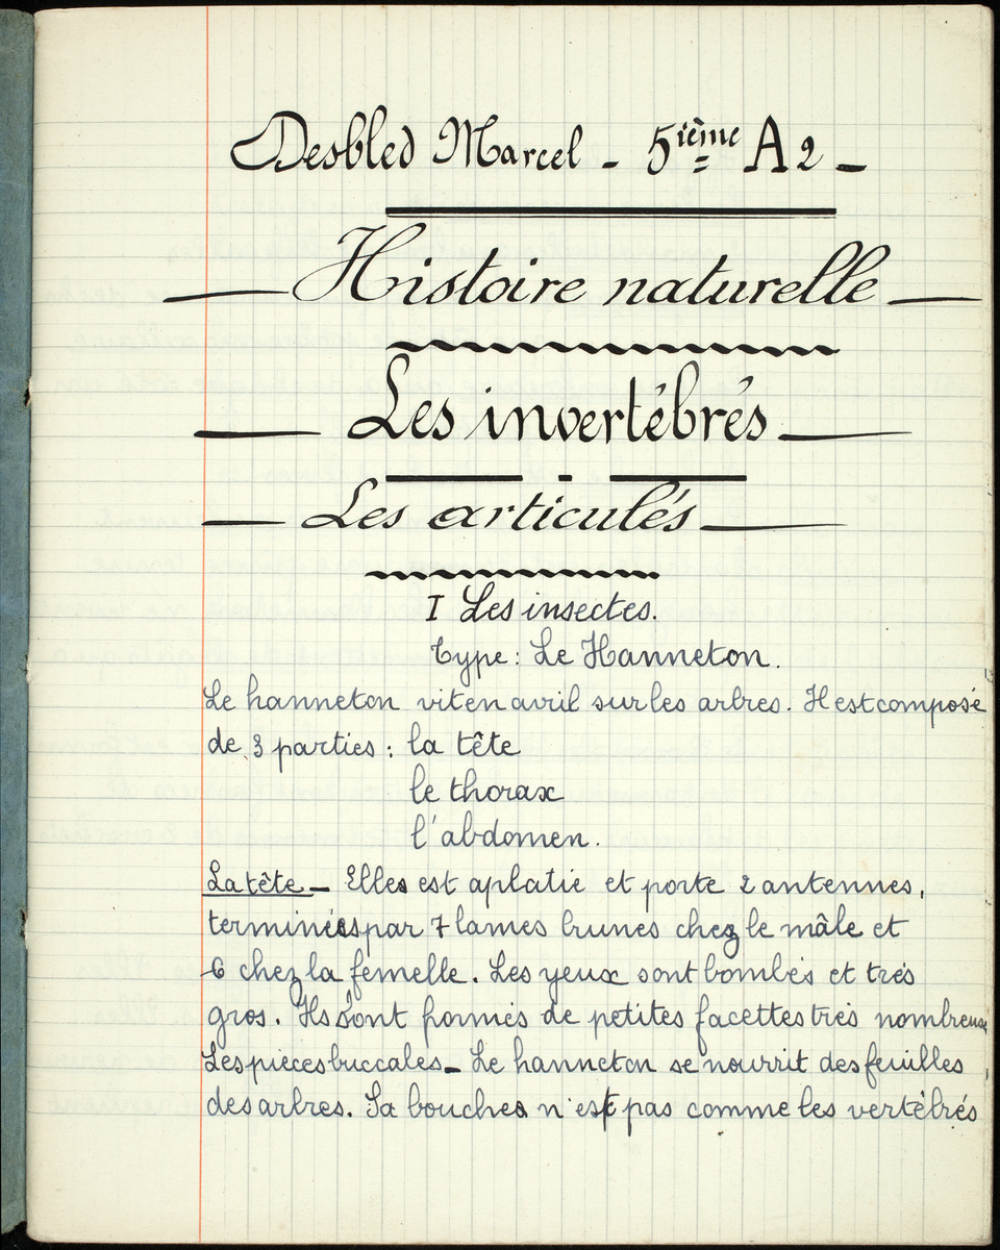 Desbled Marcel - 5ième A2 -
Histoire naturelle
Les invertébrés
Les articulés
I Les insectes.
Type : Le Hanneton.
Le hanneton vit en avril sur les arbres. Il est composé
de 3 parties : la tête
le thorax
l'abdomen.
La tête - Elles est aplatie et porte 2 antennes,
terminées par 7 lames brunes chez le mâle et
6 chez la femelle. Les yeux sont bombés et très
gros. Ils sont formés de petites facettes très nombreux
Les pièces buccales - Le hanneton se nourrit des feuilles
des arbres. Sa bouche n'est pas comme les vertébrés